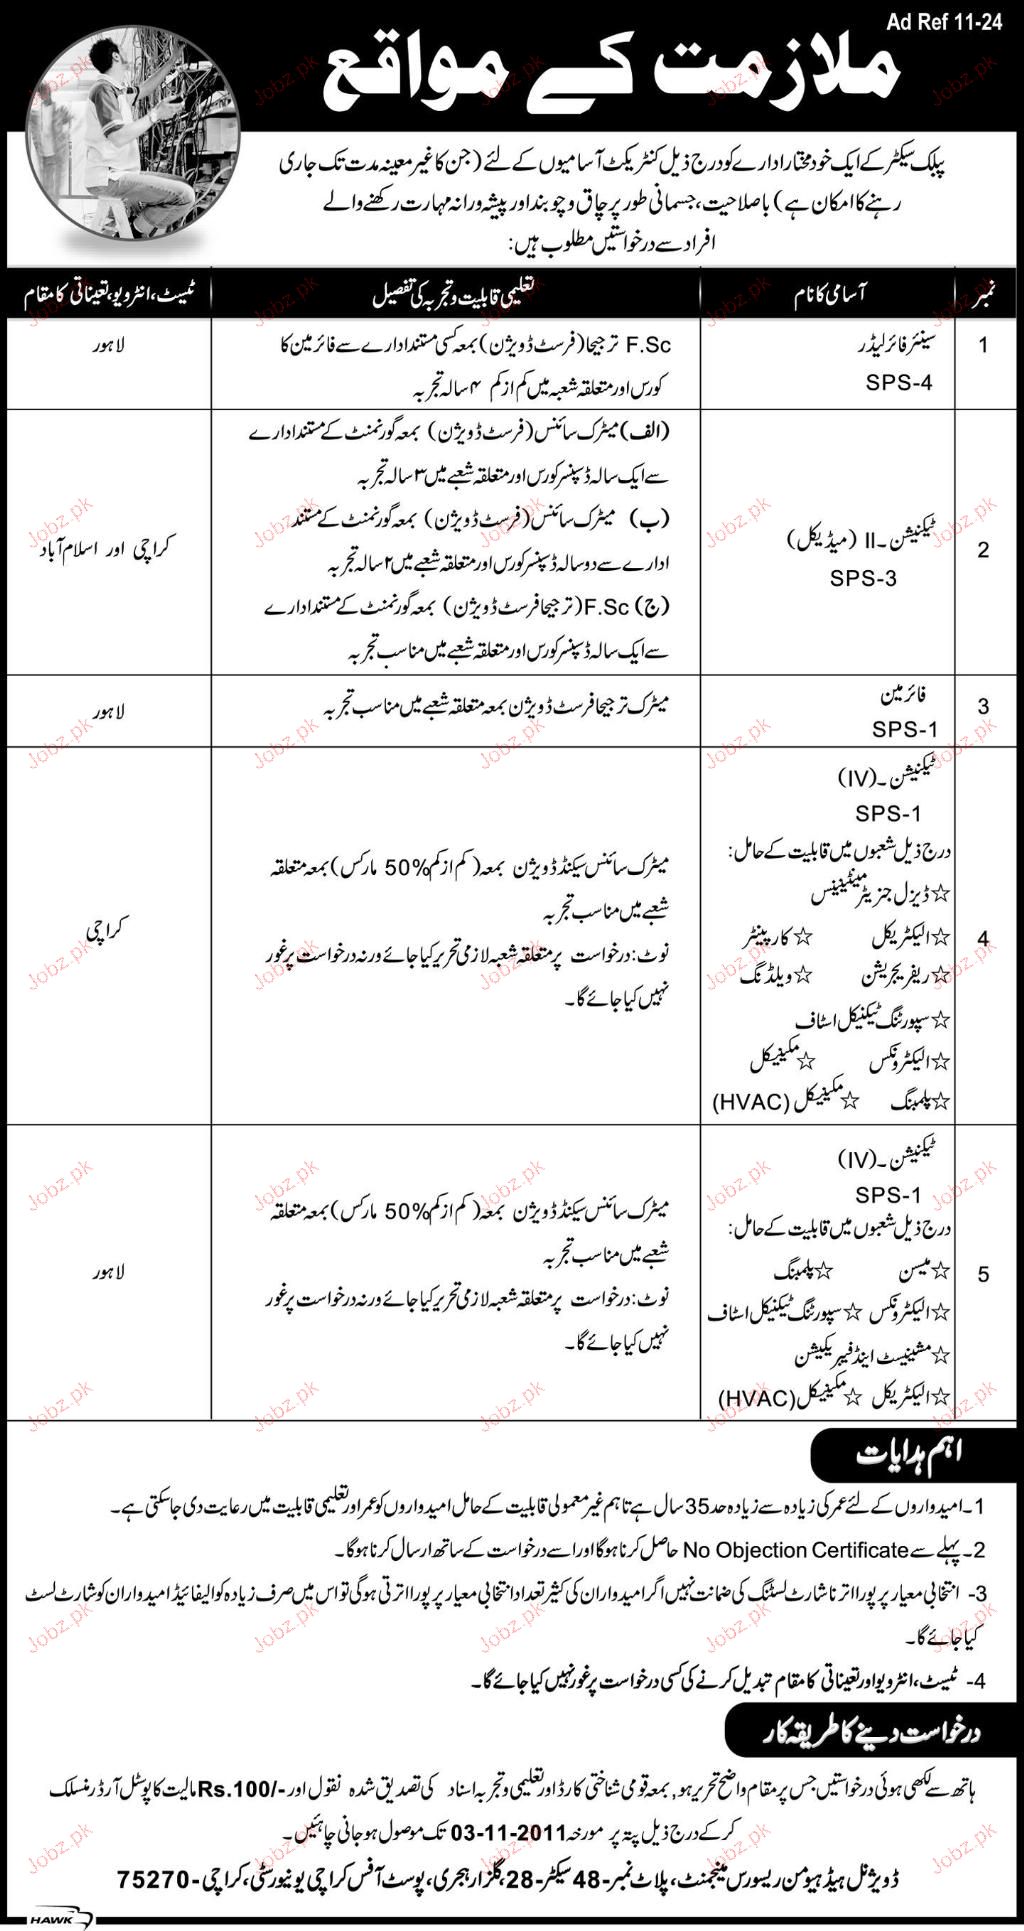 Ad Ref 11-24
ملازمت کے مواقع
پبلک سیکٹر کے ایک خود مختار ادارے کو درج ذیل کنٹریکٹ آسامیوں کے لئے (جن کا غیر معینہ مدت تک جاری
رہنے کا امکان ہے) با صلاحیت، جسمانی طور پر چاق و چوبند اور پیشہ ورانہ مہارت رکھنے والے
افراد سے درخواستیں مطلوب ہیں:
نمبر آسامی کا نام تعلیمی قابلیت و تجربہ کی تفصیل ٹیسٹ، انٹرویو، تعیناتی کا مقام
1 سینئر فائر لیڈر
SPS-4
F.Sc ترجیحا (فرسٹ ڈویژن) بمعہ کسی مستند ادارے سے فائرمین کا
کورس اور متعلقہ شعبہ میں کم از کم ۴ سالہ تجربہ
لاہور
2 ٹیکنیشن۔II (میڈیکل)
SPS-3
(الف) میٹرک سائنس (فرسٹ ڈویژن) بمعہ گورنمنٹ کے مستند ادارے
سے ایک سالہ ڈسپنسر کورس اور متعلقہ شعبے میں ۳ سالہ تجربہ
(ب) میٹرک سائنس (فرسٹ ڈویژن) بمعہ گورنمنٹ کے مستند
ادارے سے دو سالہ ڈسپنسر کورس اور متعلقہ شعبے میں ۲ سالہ تجربہ
(ج) F.Sc (ترجیحا فرسٹ ڈویژن) بمعہ گورنمنٹ کے مستند ادارے
سے ایک سالہ ڈسپنسر کورس اور متعلقہ شعبے میں مناسب تجربہ
کراچی اور اسلام آباد
3 فائرمین
SPS-1
میٹرک ترجیحا فرسٹ ڈویژن بمعہ متعلقہ شعبے میں مناسب تجربہ
لاہور
4 ٹیکنیشن۔(IV)
SPS-1
درج ذیل شعبوں میں قابلیت کے حامل:
☆ڈیزل جنریٹر مینٹیننس
☆الیکٹریکل ☆کارپینٹر
☆ریفریجریشن ☆ویلڈنگ
☆سپورٹنگ ٹیکنیکل اسٹاف
☆الیکٹرونکس ☆مکینیکل
☆پلمبنگ ☆مکینیکل (HVAC)
میٹرک سائنس سیکنڈ ڈویژن بمعہ (کم از کم 50% مارکس) بمعہ متعلقہ
شعبے میں مناسب تجربہ
نوٹ: درخواست پر متعلقہ شعبہ لازمی تحریر کیا جائے ورنہ درخواست پر غور
نہیں کیا جائے گا۔
کراچی
5 ٹیکنیشن۔(IV)
SPS-1
درج ذیل شعبوں میں قابلیت کے حامل:
☆میسن ☆پلمبنگ
☆الیکٹرونکس ☆سپورٹنگ ٹیکنیکل اسٹاف
☆مشینیسٹ اینڈ فیبریکیشن
☆الیکٹریکل ☆مکینیکل (HVAC)
میٹرک سائنس سیکنڈ ڈویژن بمعہ (کم از کم 50% مارکس) بمعہ متعلقہ
شعبے میں مناسب تجربہ
نوٹ: درخواست پر متعلقہ شعبہ لازمی تحریر کیا جائے ورنہ درخواست پر غور
نہیں کیا جائے گا۔
لاہور
اہم ہدایات
1۔ امیدواروں کے لئے عمر کی زیادہ سے زیادہ حد 35 سال ہے تاہم غیر معمولی قابلیت کے حامل امیدواروں کو عمر اور تعلیمی قابلیت میں رعایت دی جاسکتی ہے۔
2۔ پہلے سے No Objection Certificate حاصل کرنا ہوگا اور اسے درخواست کے ساتھ ارسال کرنا ہوگا۔
3- انتخابی معیار پر پورا اترنا شارٹ لسٹنگ کی ضمانت نہیں اگر امیدواران کی کثیر تعداد انتخابی معیار پر پورا اترتی ہوگی تو اس میں صرف زیادہ کوالیفائیڈ امیدواران کو شارٹ لسٹ
کیا جائے گا۔
4- ٹیسٹ، انٹرویو اور تعیناتی کا مقام تبدیل کرنے کی کسی درخواست پر غور نہیں کیا جائے گا۔
درخواست دینے کا طریقہ کار
ہاتھ سے لکھی ہوئی درخواستیں جس پر مقام واضح تحریر ہو، بمعہ قومی شناختی کارڈ اور تعلیمی و تجربہ اسناد کی تصدیق شدہ نقول اور Rs.100/- مالیت کا پوسٹل آرڈر منسلک
کر کے درج ذیل پتہ پر مورخہ 03-11-2011 تک موصول ہو جانی چاہئیں۔
ڈویژنل ہیڈ ہیومن ریسورس مینجمنٹ، پلاٹ نمبر-48 سیکٹر-28، گلزار ہجری، پوسٹ آفس کراچی یونیورسٹی، کراچی-75270
HAWK
Jobz.pk